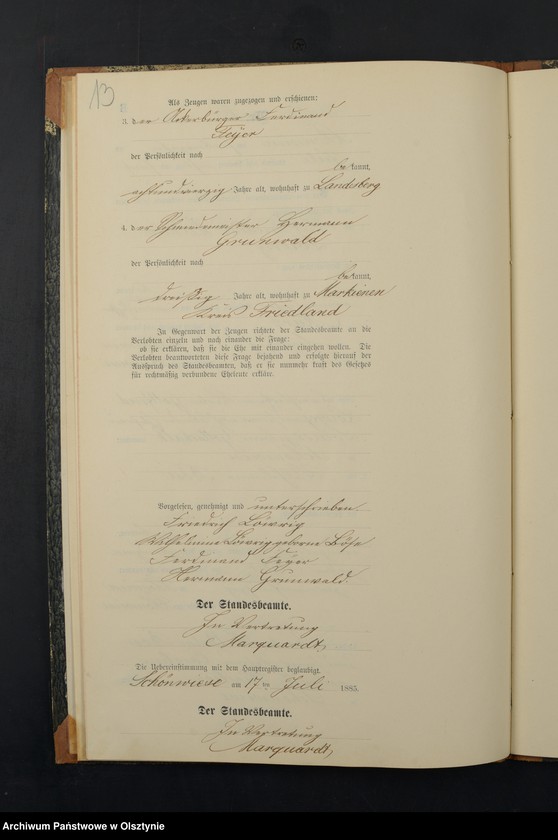 13
Als Zeugen waren zugezogen und erschienen:
3. der Ackerbürger Ferdinand
Feyer
der Persönlichkeit nach
bekannt,
achtundvierzig Jahre alt, wohnhaft zu Landsberg
4. der Schmiedemeister Hermann
Grunwald
der Persönlichkeit nach
bekannt,
dreißig Jahre alt, wohnhaft zu Markienen
Kreis Friedland
In Gegenwart der Zeugen richtete der Standesbeamte an die
Verlobten einzeln und nach einander die Frage:
ob sie erklären, daß sie die Ehe mit einander eingehen wollen. Die
Verlobten beantworteten diese Frage bejahend und erfolgte hierauf der
Ausspruch des Standesbeamten, daß er sie nunmehr kraft des Gesetzes
für rechtmäßig verbundene Eheleute erkläre.
Vorgelesen, genehmigt und unterschrieben
Friedrich Löwrig
Wilhelmine Löwrig geborne Böse
Ferdinand Feyer
Hermann Grunwald
Der Standesbeamte.
In Vertretung
Marquardt,
Die Uebereinstimmung mit dem Hauptregister beglaubigt.
Schönwiese am 17 ten Juli 1885.
Der Standesbeamte.
In Vertretung
Marquardt,
Archiwum Państwowe w Olsztynie